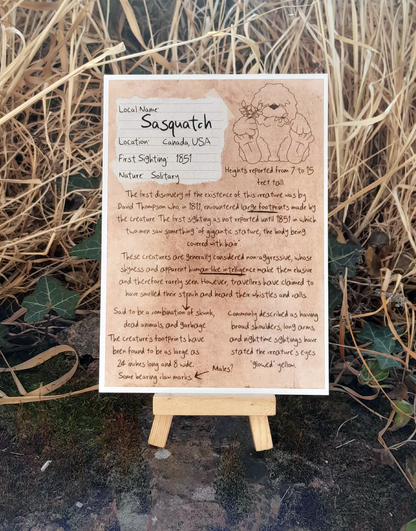 Local Name
Sasquatch
Location: Canada, USA
First Sighting: 1851
Nature Solitary
Heights reported from 7 to 15
feet tall
The first discovery of the existence of this creature was by
David Thompson who in 1811, encountered large footprints made by
the creature. The first sighting as not reported until 1851 in which
two men saw something 'of gigantic stature, the body being
covered with hair'
These creatures are generally considered non-aggressive, whose
shyness and apparent human-like intelligence make them elusive
and therefore rarely seen. However, travellers have claimed to
have smelled their stench and heard their whistles and calls.
Said to be a combination of skunk,
dead animals, and garbage
The creature's footprints have
been found to be as large as
24 inches long and 8 wide.
Some bearing claw marks
Males?
Commonly described as having
broad shoulders, long arms
and nighttime sightings have
stated the creature's eyes
'glowed' yellow.